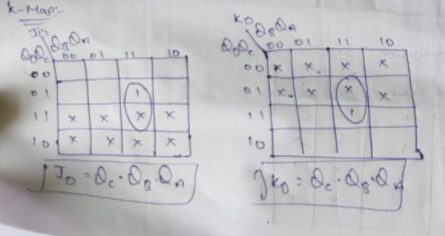 K-Map:-
JD
QBQA
QDQC 00 01 11 10
00
01 1
11 x x x x
10 x x x x
JD = QC · QB · QA
KD
QBQA
QDQC 00 01 11 10
00 x x x x
01 x x x x
11 1
10
KD = QC · QB · QA